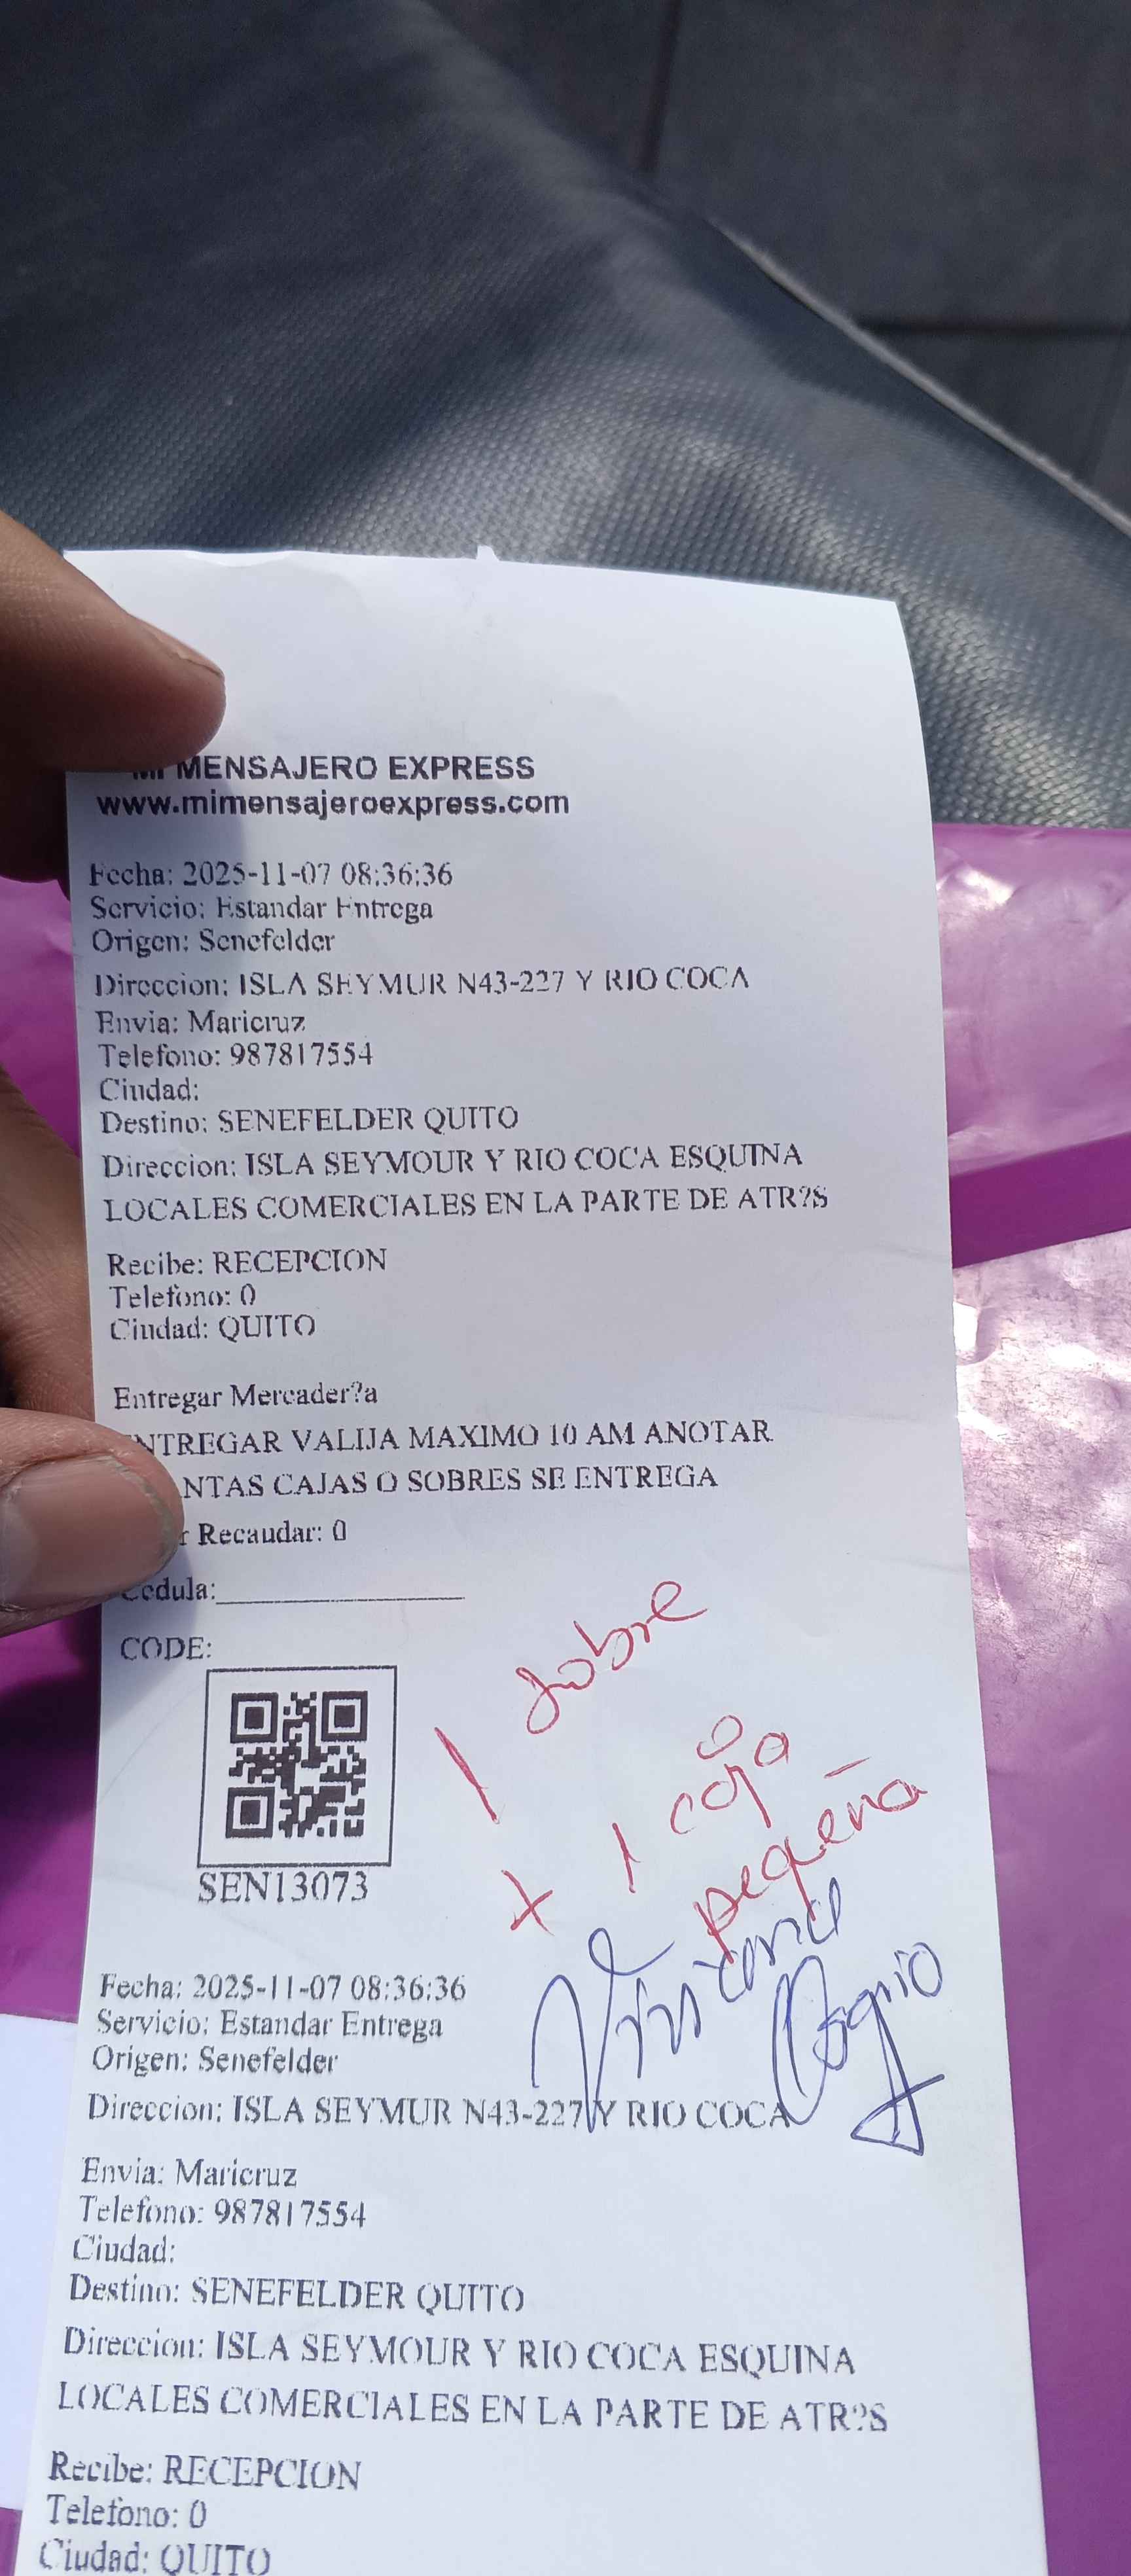 MI MENSAJERO EXPRESS
www.mimensajeroexpress.com
Fecha: 2025-11-07 08:36:36
Servicio: Estandar Entrega
Origen: Senefelder
Direccion: ISLA SEYMUR N43-227 Y RIO COCA
Envia: Maricruz
Telefono: 987817554
Ciudad:
Destino: SENEFELDER QUITO
Direccion: ISLA SEYMOUR Y RIO COCA ESQUINA
LOCALES COMERCIALES EN LA PARTE DE ATR?S
Recibe: RECEPCION
Telefono: 0
Ciudad: QUITO
Entregar Mercader?a
ENTREGAR VALIJA MAXIMO 10 AM ANOTAR
NTAS CAJAS O SOBRES SE ENTREGA
r Recaudar: 0
Cedula:
CODE:
1 sobre
+ 1 caja
pequeña
SEN13073
Fecha: 2025-11-07 08:36:36
Servicio: Estandar Entrega
Origen: Senefelder
Direccion: ISLA SEYMUR N43-227 Y RIO COCA
Envia: Maricruz
Telefono: 987817554
Ciudad:
Destino: SENEFELDER QUITO
Direccion: ISLA SEYMOUR Y RIO COCA ESQUINA
LOCALES COMERCIALES EN LA PARTE DE ATR?S
Recibe: RECEPCION
Telefono: 0
Ciudad: QUITO